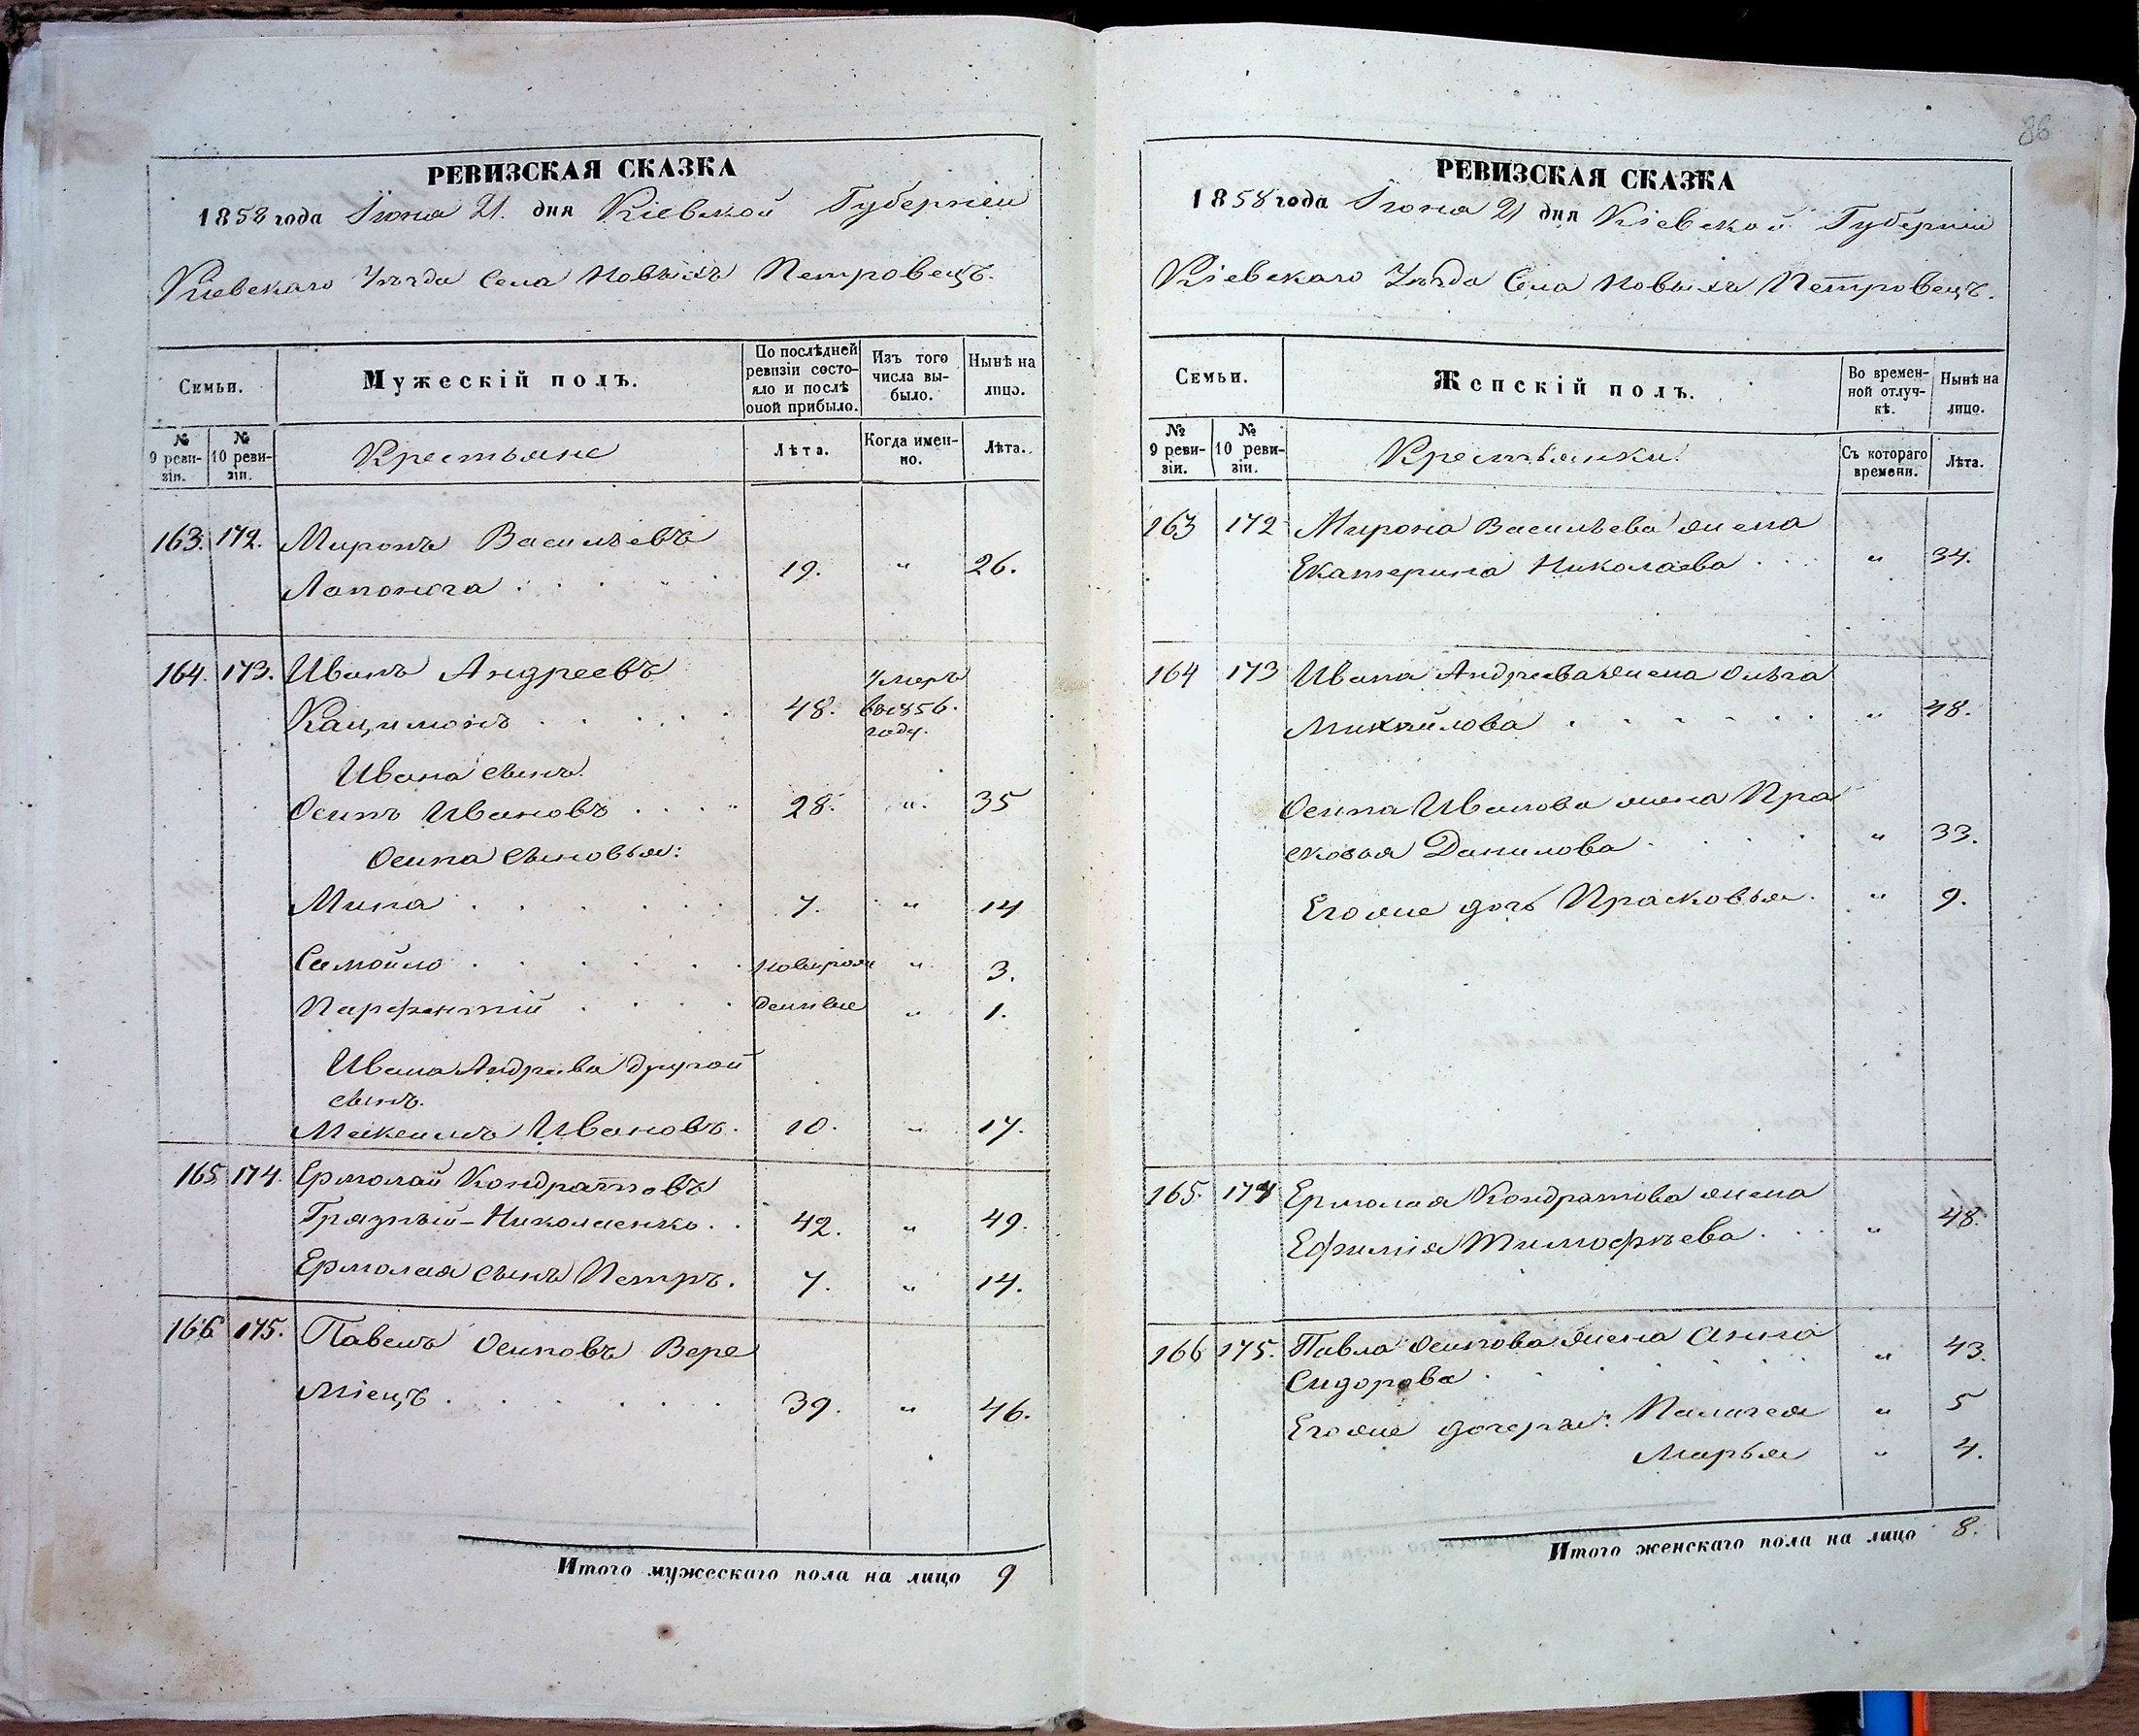 РЕВИЗСКАЯ СКАЗКА
1858 года Іюня 21. дня Кіевской Губерніи
Кіевскаго Уѣзда Села Новыхъ Петровецъ.
Семьи.
Мужескій полъ.
По послѣдней ревизіи состояло и послѣ оной прибыло.
Изъ того числа выбыло.
Нынѣ на лицо.
№ 9 ревизіи.
№ 10 ревизіи.
Крестьяне
Лѣта.
Когда именно.
Лѣта.
163. 172. Миронъ Васильевъ
Лапонога . . . . . 19. " 26.
164. 173. Иванъ Андреевъ
Кацимонъ . . . . . 48. Умеръ во 1856. году.
Ивана сынъ.
Осипъ Ивановъ . . . . 28. " 35
Осипа сыновья:
Мина . . . . . 7. " 14
Самойло . . . . . новорож " 3.
Парфентій . . . . денные " 1.
Ивана Андреева другой
сынъ.
Максимъ Ивановъ. 10. " 17.
165 174. Ермолай Кондратовъ
Грязный-Николаенко . . 42. " 49.
Ермолая сынъ Петръ. 7. " 14.
166 175. Павелъ Осиповъ Вере
міецъ . . . . . . 39. " 46.
Итого мужескаго пола на лицо 9
86
РЕВИЗСКАЯ СКАЗКА
1858 года Іюня 21 дня Кіевской Губерніи
Кіевскаго Уѣзда Села Новыхъ Петровецъ.
Семьи.
Женскій полъ.
Во временной отлучкѣ.
Нынѣ на лицо.
№ 9 ревизіи.
№ 10 ревизіи.
Крестьянки.
Съ котораго времени.
Лѣта.
163 172 Мирона Васильева жена
Екатерина Николаева . . . " 34.
164 173 Ивана Андреева жена Ольга
Михайлова . . . . . . " 48.
Осипа Иванова жена Пра
сковья Данилова . . . " 33.
Его же дочь Прасковья. " 9.
165. 174 Ермолая Кондратова жена
Ефимія Тимофѣева . . . " 48.
166 175. Павла Осипова жена Анна
Сидорова . . . . . . " 43.
Его же дочери: Палагея " 5
Марья " 4.
Итого женскаго пола на лицо 8.